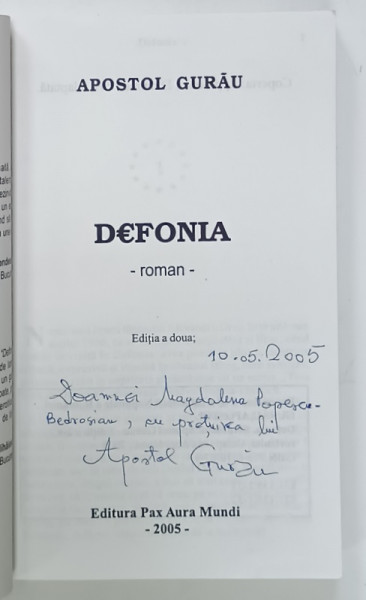 APOSTOL GURĂU
D€FONIA
- roman -
Ediția a doua;
10.05.2005
Doamnei Magdalena Popescu-
Bedrosian, cu prețuirea lui
Apostol Gurău
Editura Pax Aura Mundi
- 2005 -